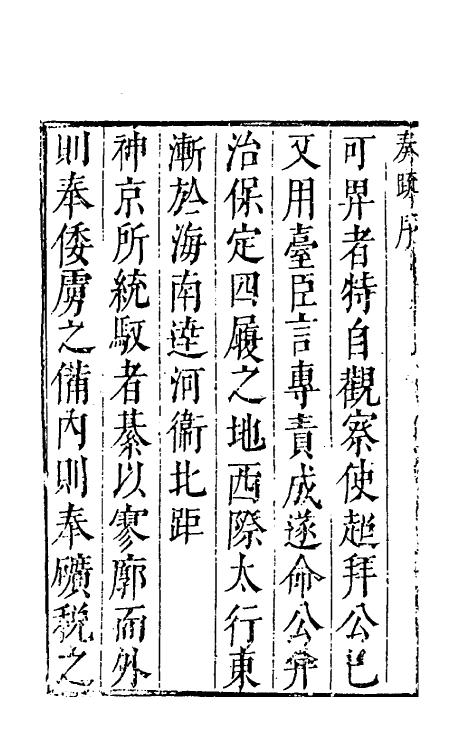 奏疏序
可畀者特自觀察使超拜公已
又用臺臣言專責成遂命公弁
治保定四履之地西際太行東
漸於海南達河衞北距
神京所統馭者綦以寥廓而外
則奉倭虜之備內則奉礦稅之